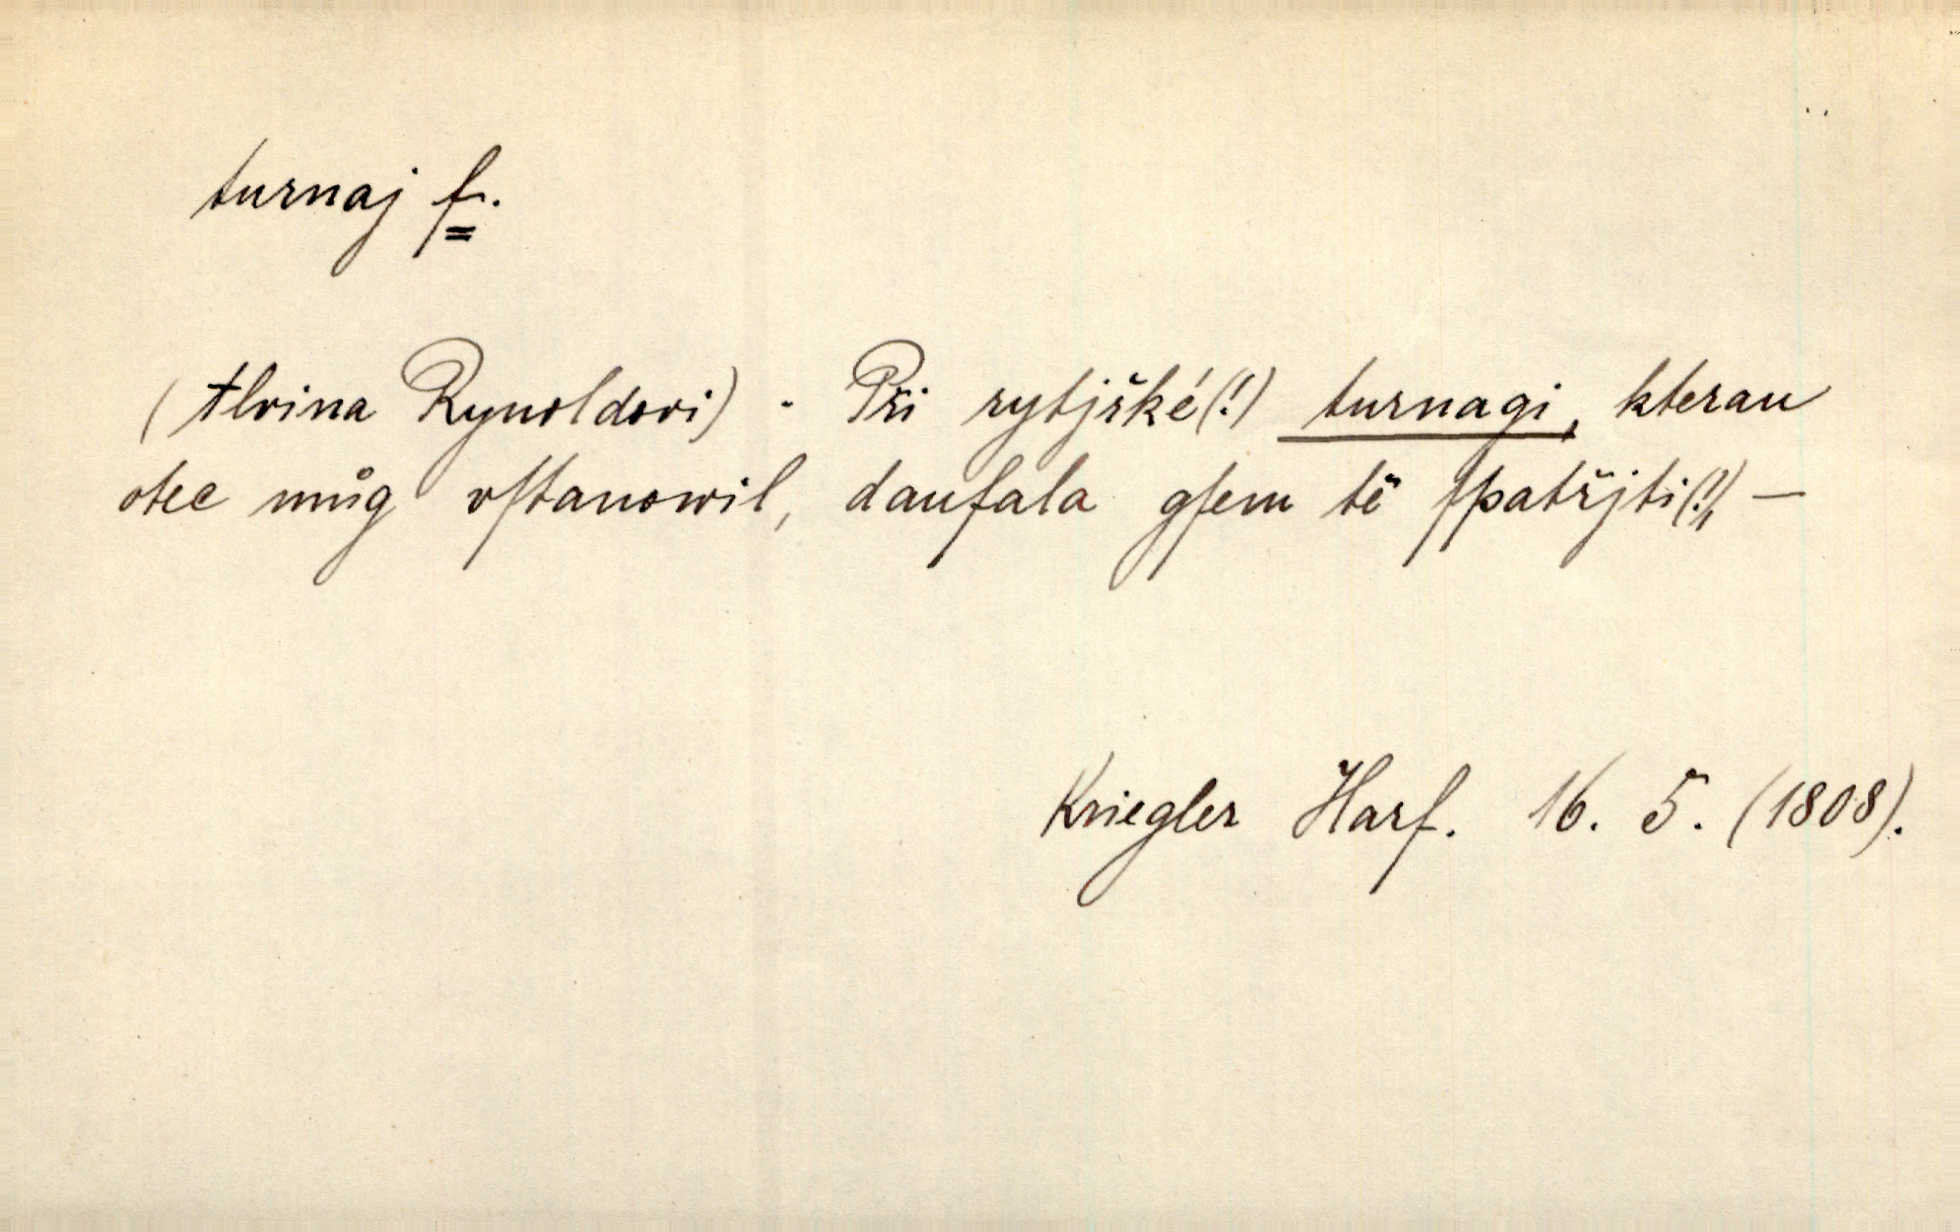 turnaj f.
(Alvina Rynoldovi) - Při rytjřké(!) turnagi, kterau
otec můg vſtanowil, daufala gſem tě ſpatřjti(!), —
Kriegler Harf. 16. 5. (1808).